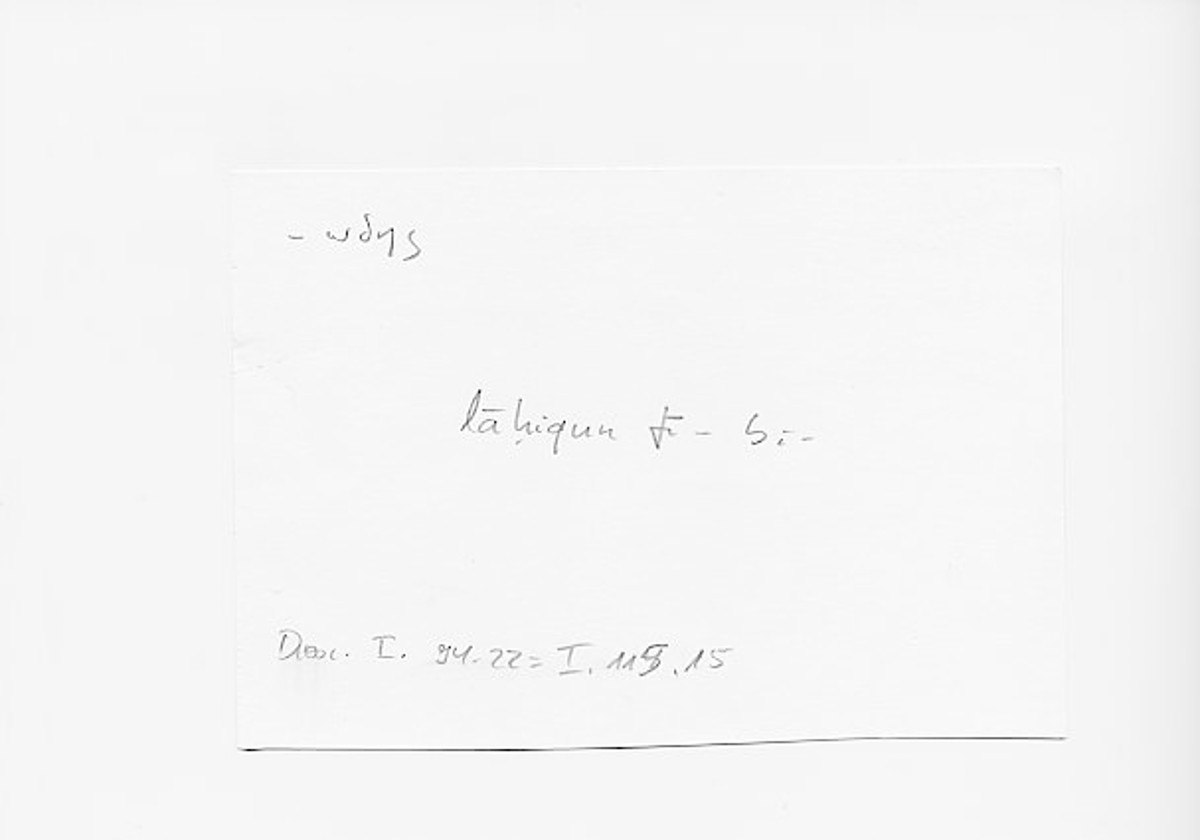 - ωδης
lāḥiqun fī - bi-
Diosc. I. 94.22 = I. 115.15